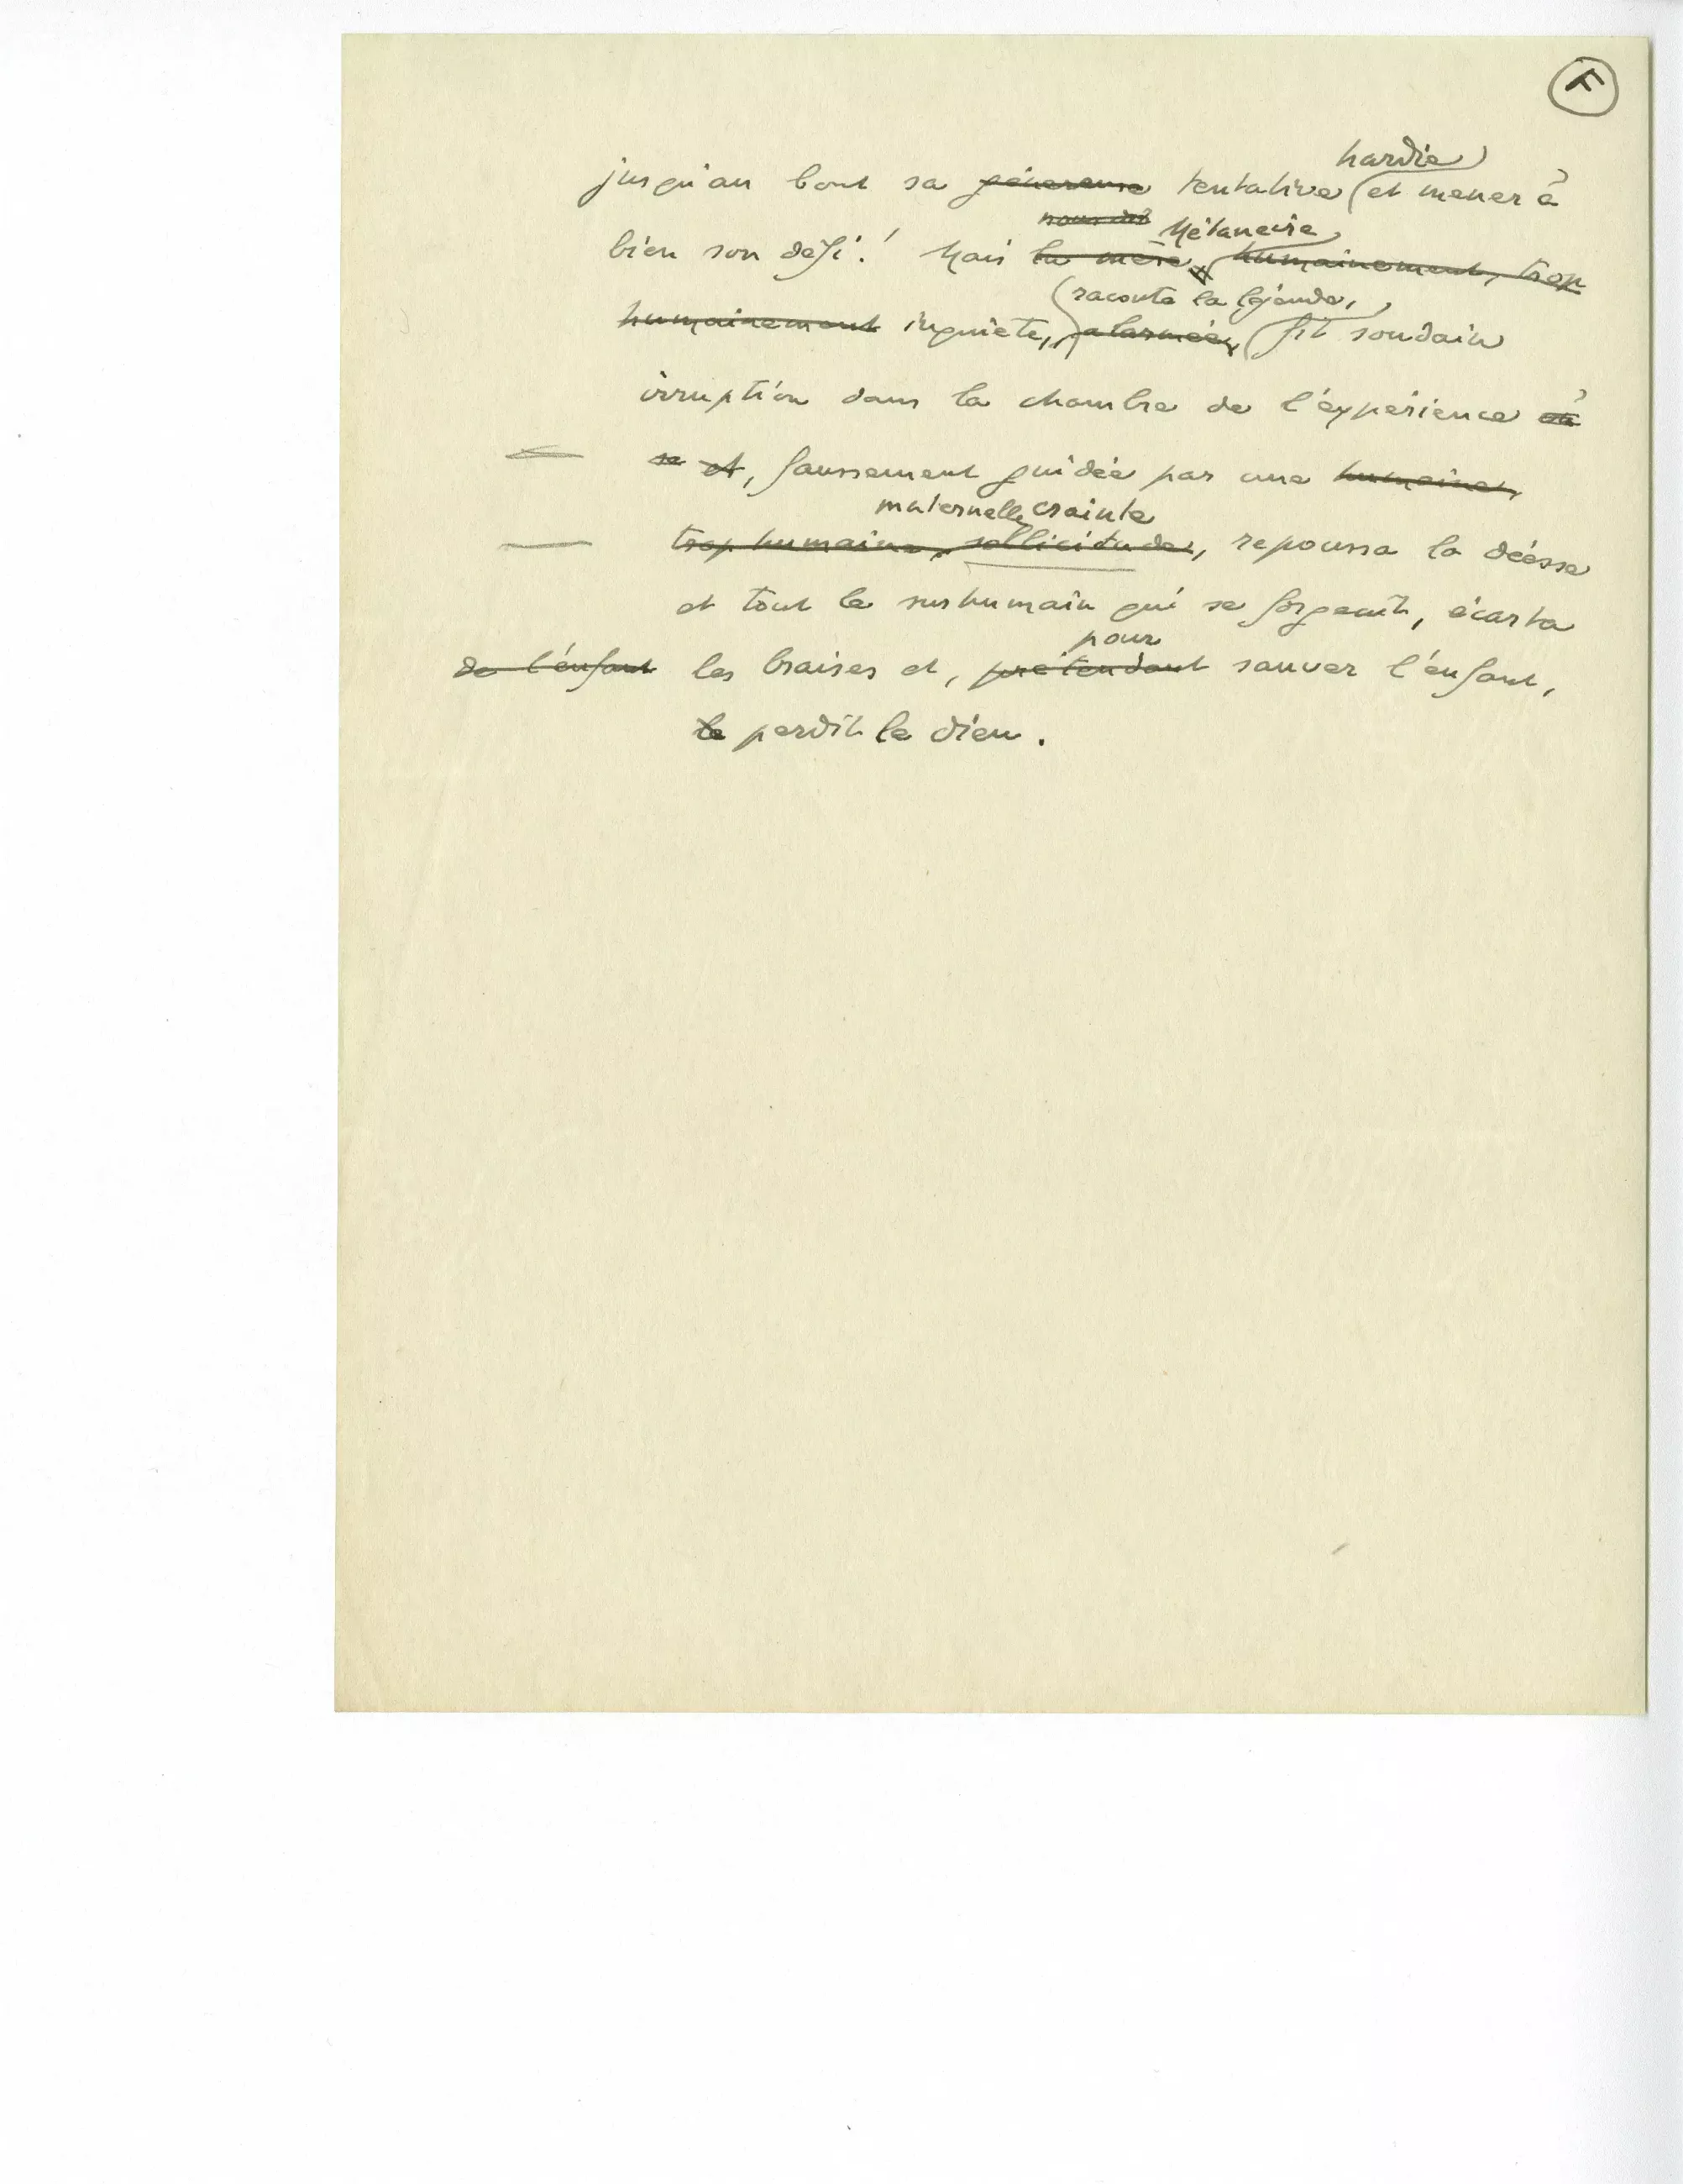 F
hardie
jusqu'au bout sa généreuse tentative et mener à
Métanire,
bien son défi! Mais la mère, humainement, trop
(raconte la légende,
humainement inquiète, alarmée, fit soudain
irruption dans la chambre de l'expérience
se et, faussement guidée par une humaine,
maternelle crainte
trop humaine, sollicitude, repoussa la déesse
et tout le surhumain qui se forgeait, écarta
pour
de l'enfant les braises et, prétendant sauver l'enfant,
le perdit le dieu.